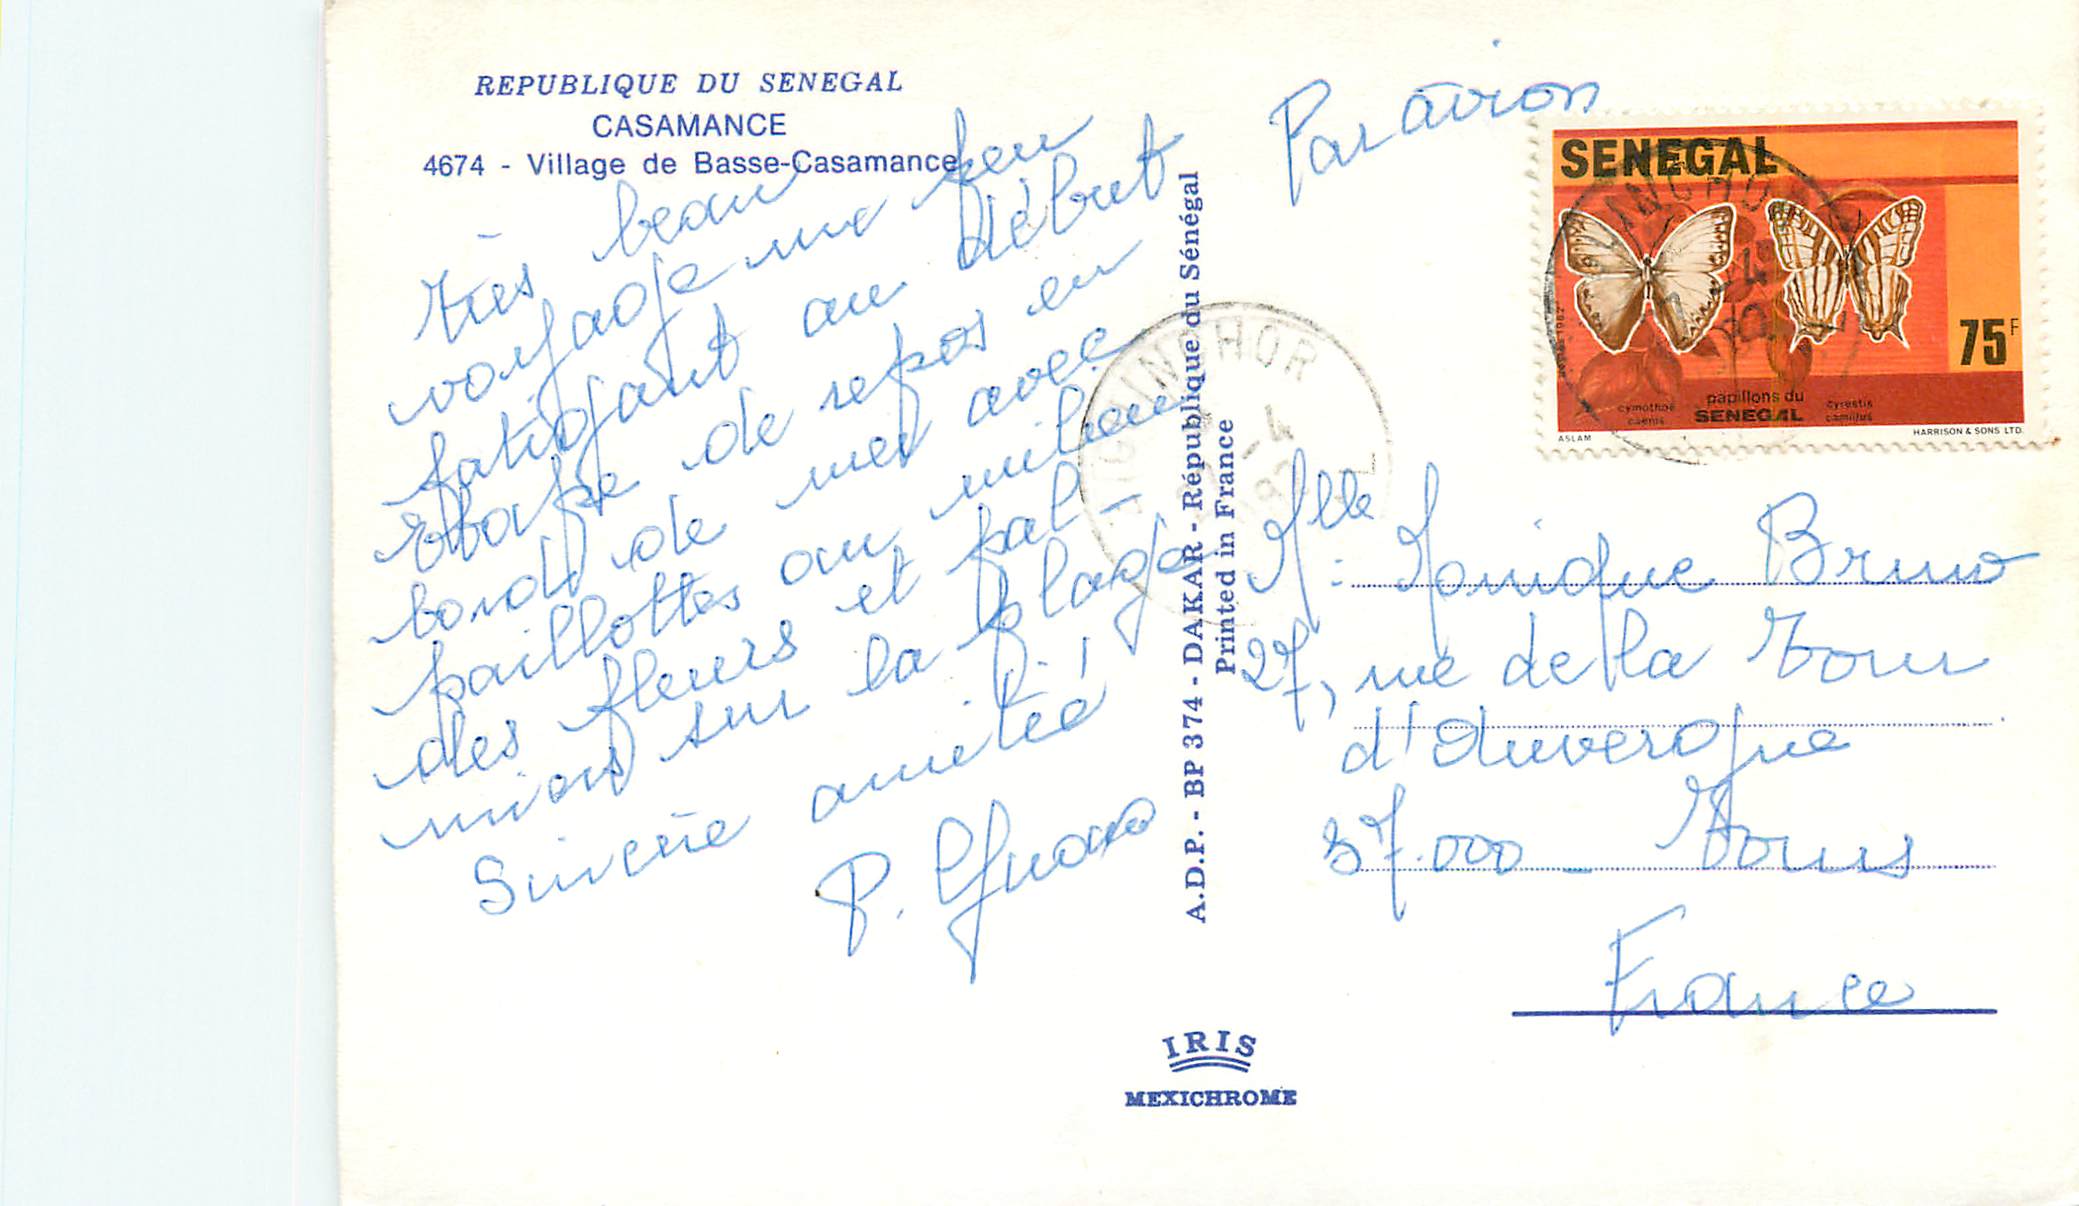 REPUBLIQUE DU SENEGAL
CASAMANCE
4674 - Village de Basse-Casamance
Très beau
voyage un peu
fatigant au début
Etape de repos en
bord de mer avec
paillottes au milieu
des fleurs et pal-
miers sur la plage !
Sincère amitié
P.
A.D.P. - BP 374 - DAKAR - République du Sénégal
Printed in France
IRIS
MEXICHROME
Par avion
SENEGAL
75F
papillons du
SENEGAL
cymothoe
caenis
cyrestis
camillus
ASLAM
HARRISON & SONS LTD.
ZIGUINCHOR
Mlle : Monique Bruno
27, rue de la Tour
d'Auvergne
37.000 - Tours
France